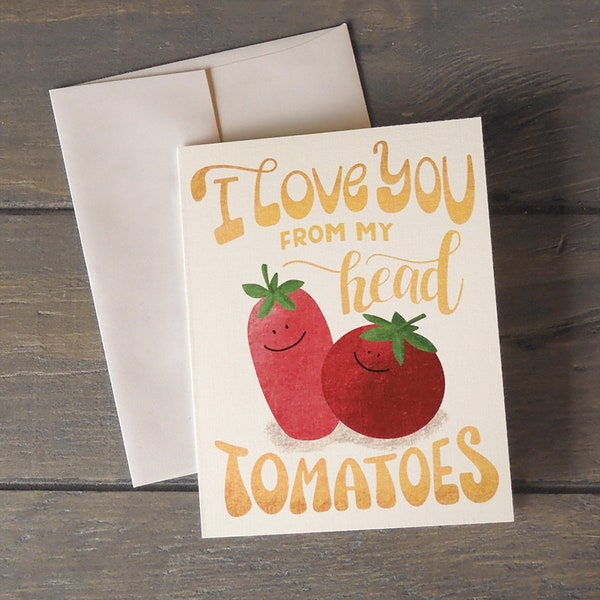 I LOVE YOU
FROM MY
head
TOMATOES